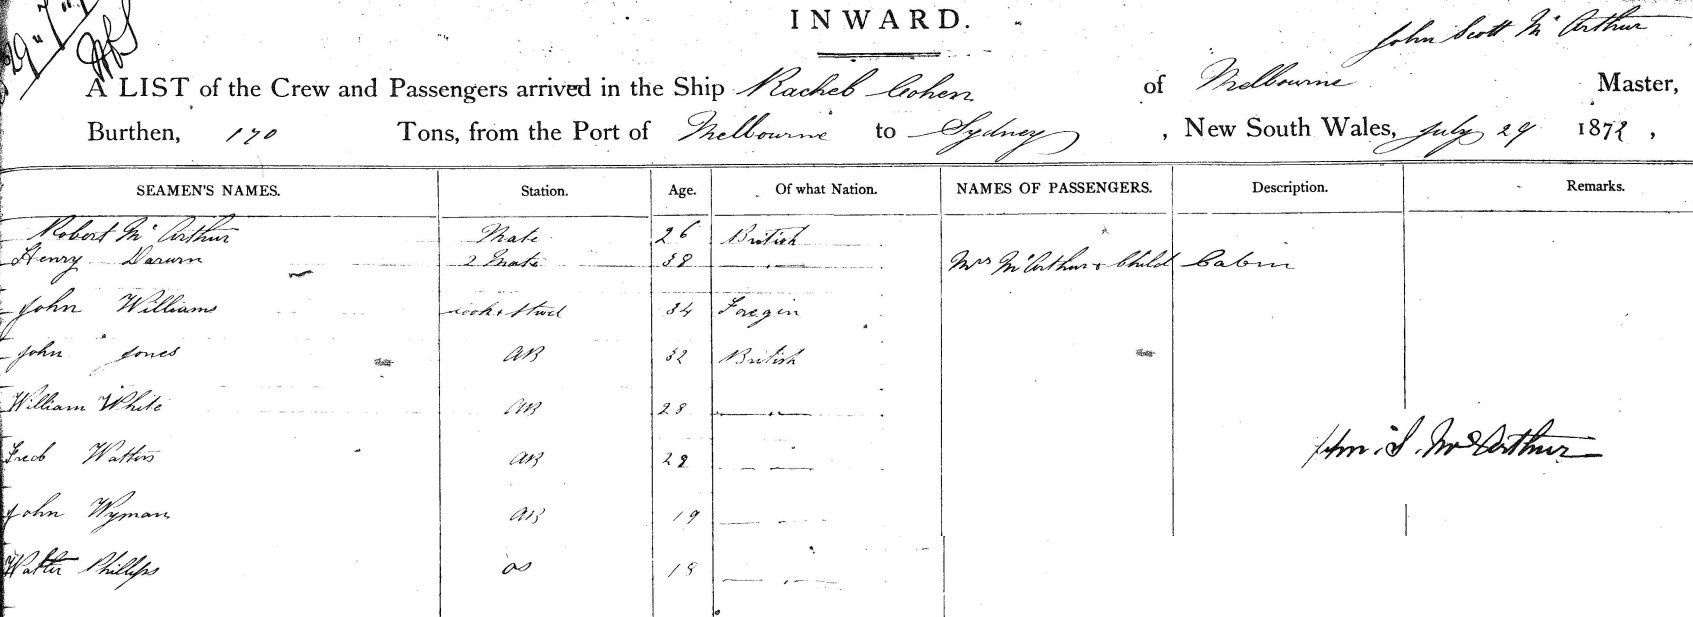 INWARD.
John Scott Mc Arthur
A LIST of the Crew and Passengers arrived in the Ship Rachel Cohen of Melbourne Master,
Burthen, 170 Tons, from the Port of Melbourne to Sydney, New South Wales, July 29 1872,
SEAMEN'S NAMES. Station. Age. Of what Nation. NAMES OF PASSENGERS. Description. Remarks.
Robert Mc Arthur Mate 26 British
Henry Darwin 2 Mate 38 — " — Mrs McArthur & Child Cabin
John Williams cook & Stwd 34 Foregin
John Jones AB 32 British
William White AB 28 — " —
Fred Watters AB 28 — " —
Jno. S. McArthur
John Wyman AB 19 — " —
Walter Phillips OS 18 — " —